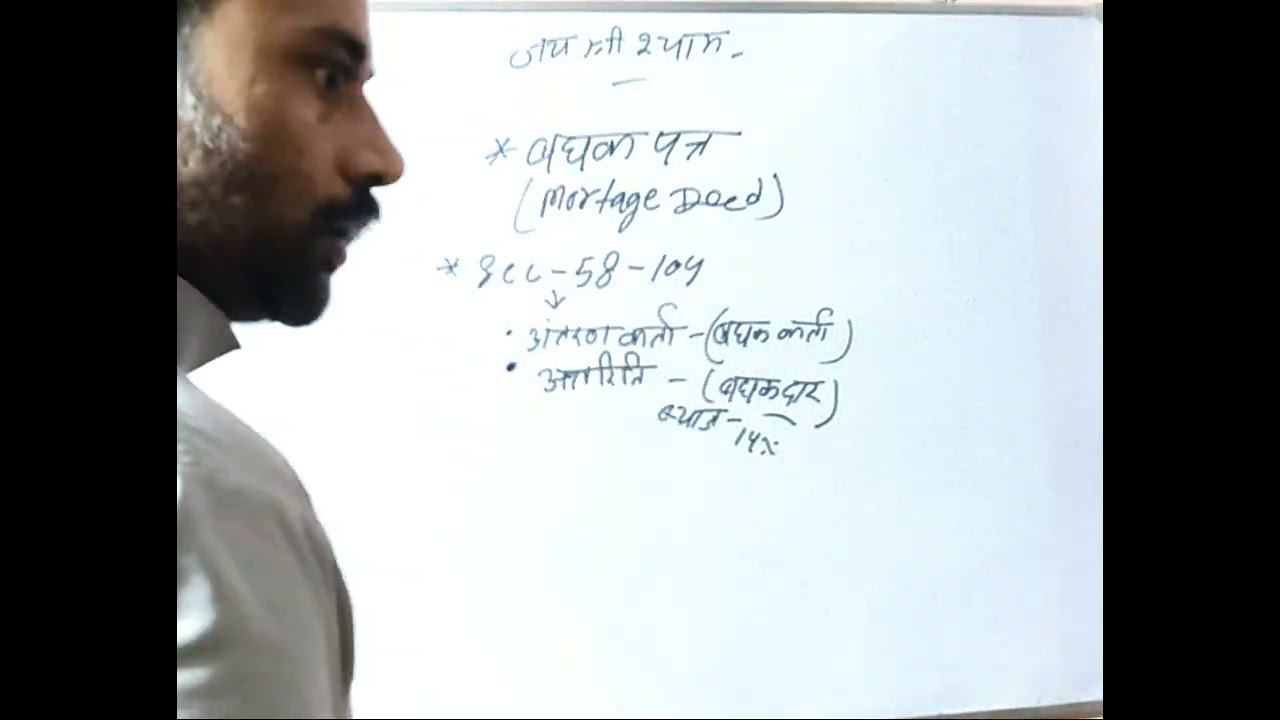 जय श्री श्याम.
* बधक पत्र
(Mortage Deed)
* Sec-58-104
· अंतरण कर्ता - (बधक कर्ता)
· अन्तारिति - (बधकदार)
ब्याज - 14%